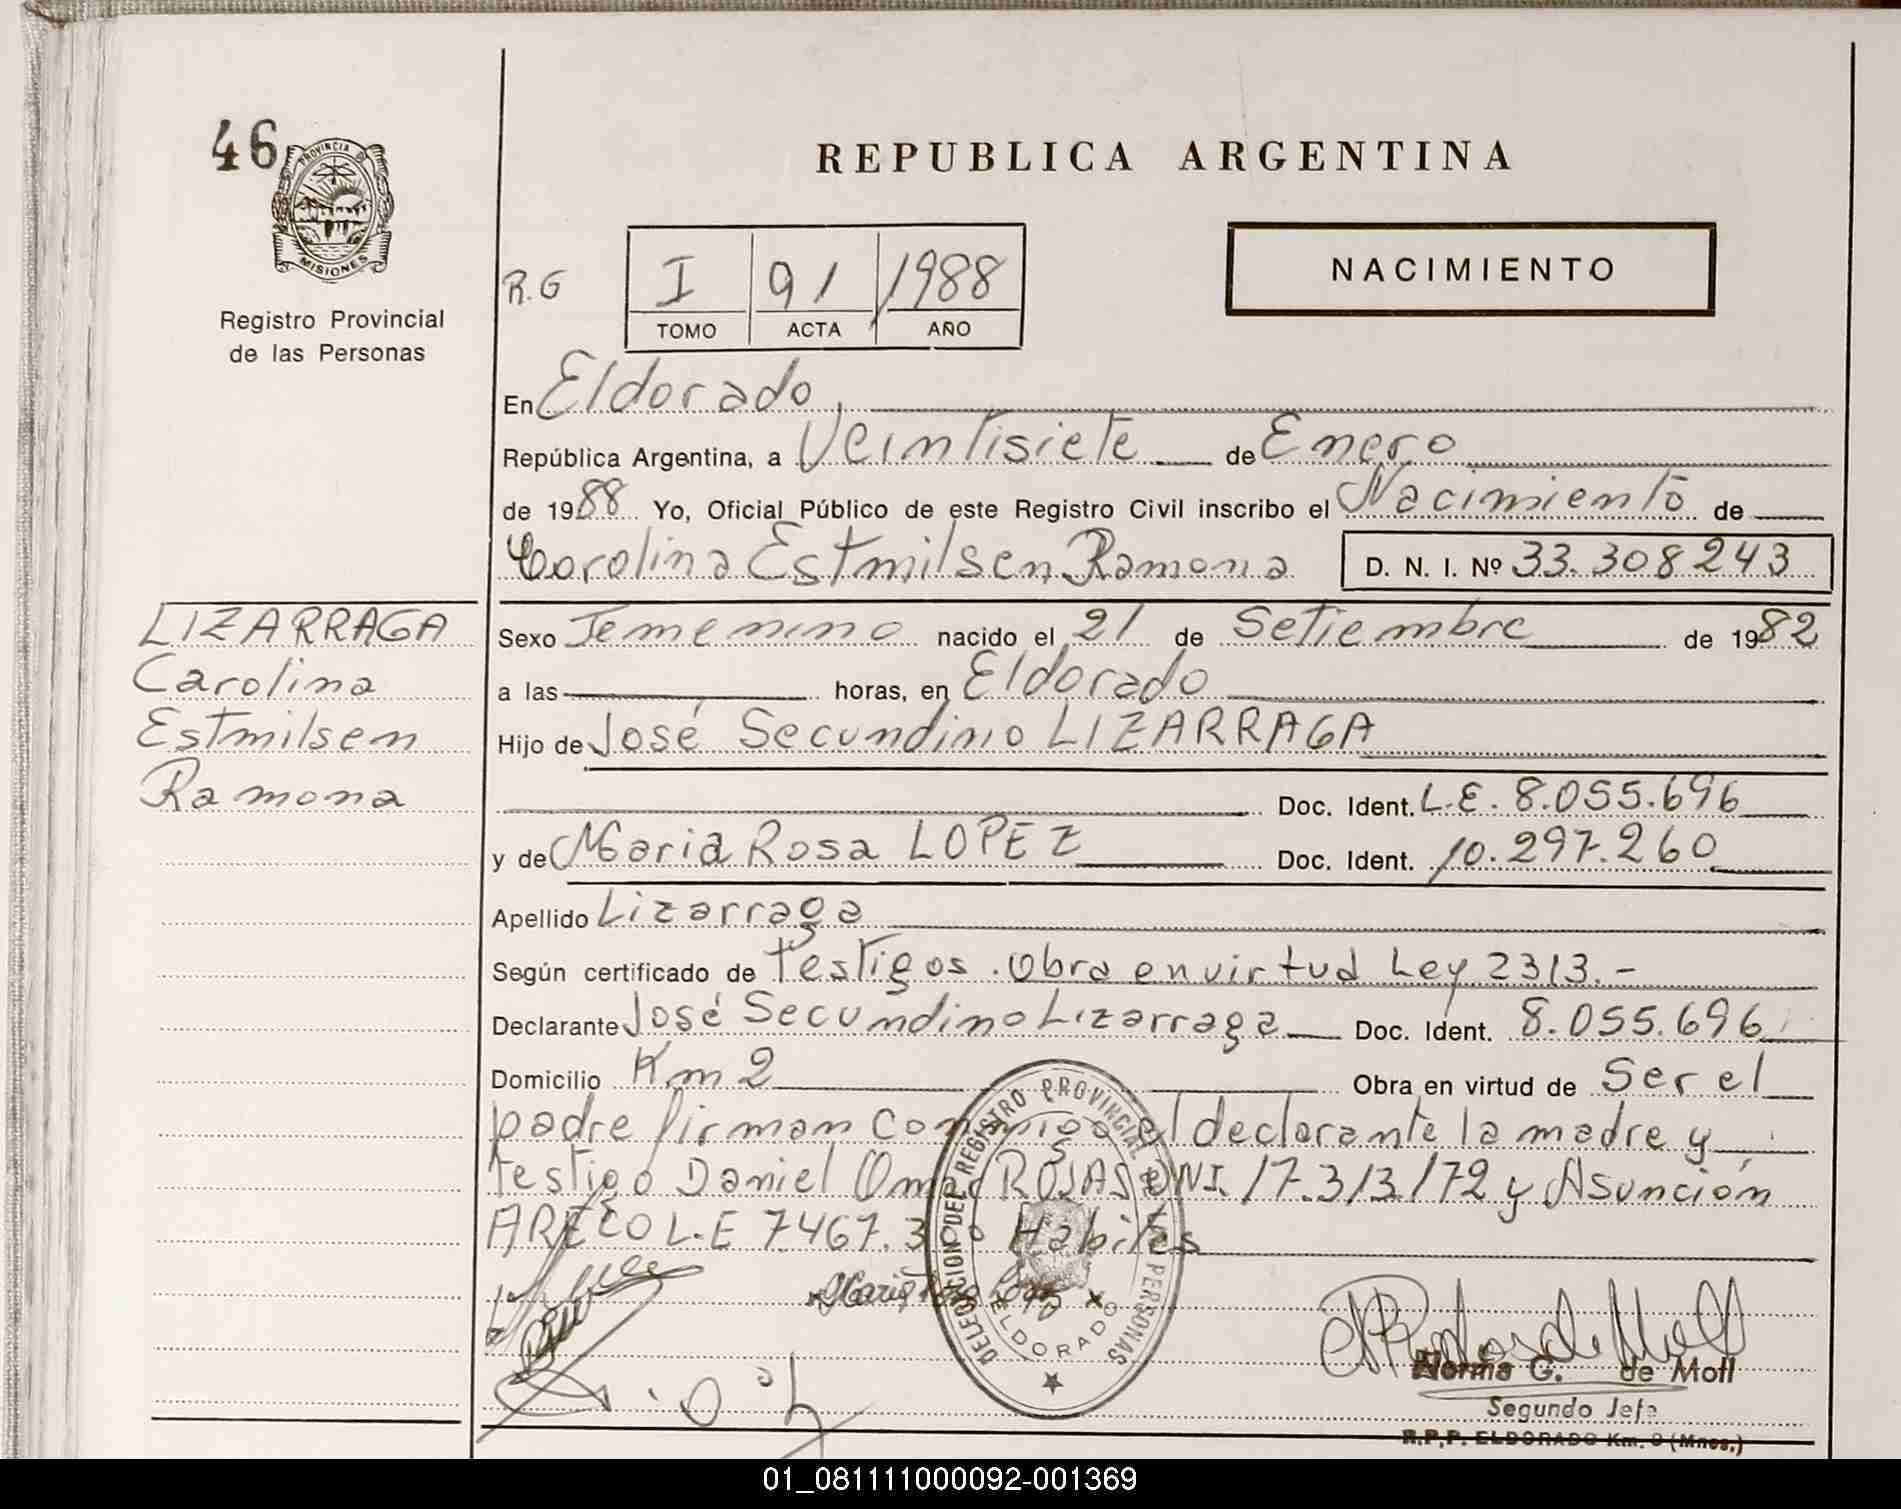 46
PROVINCIA DE
MISIONES
Registro Provincial
de las Personas
REPUBLICA ARGENTINA
NACIMIENTO
R.G
I 91 1988
TOMO ACTA AÑO
En Eldorado,
República Argentina, a Veintisiete de Enero
de 1988 Yo, Oficial Público de este Registro Civil inscribo el Nacimiento de
Carolina Estmilsen Ramona D. N. I. Nº 33.308243
LIZARRAGA
Carolina
Estmilsen
Ramona
Sexo Femenino nacido el 21 de Setiembre de 1982
a las horas, en Eldorado
Hijo de José Secundino LIZARRAGA
Doc. Ident. L.E. 8.055.696
y de Maria Rosa LOPEZ Doc. Ident. 10.297.260
Apellido Lizarraga
Según certificado de Testigos. Obra en virtud Ley 2313.-
Declarante José Secundino Lizarraga Doc. Ident. 8.055.696
Domicilio Km 2 Obra en virtud de Ser el
padre firman conmigo el declarante la madre y
testigo Daniel Omar ROJAS DNI. 17.313.172 y Asunción
ARECO L.E 7467.3 Habiles
Maria Rosa Lopez
DELEGACION DEL REGISTRO PROVINCIAL DE PERSONAS
ELDORADO
Norma G. de Motl
Segundo Jefe
R.P.P. ELDORADO Km. 9 (Mnes.)
01_081111000092-001369